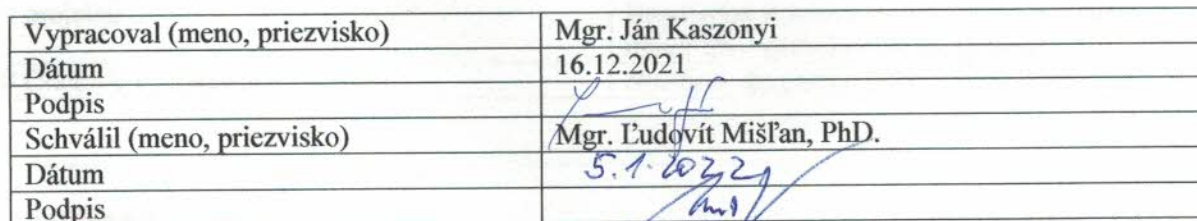 Vypracoval (meno, priezvisko) Mgr. Ján Kaszonyi
Dátum 16.12.2021
Podpis
Schválil (meno, priezvisko) Mgr. Ľudovít Mišľan, PhD.
Dátum 5.1.2022
Podpis